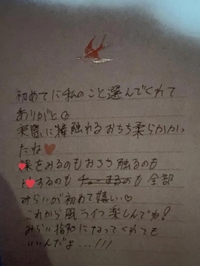 初めてに私のこと選んでくれて
ありがとう
実際に接触れるおちち柔らかかっ
たね
をみるのもおちち触るのも
するのも 全部
みらいが初めて嬉しい♡
これから風ライフ楽しんでね!
みらい指名になってくれても
いいんだよ…///